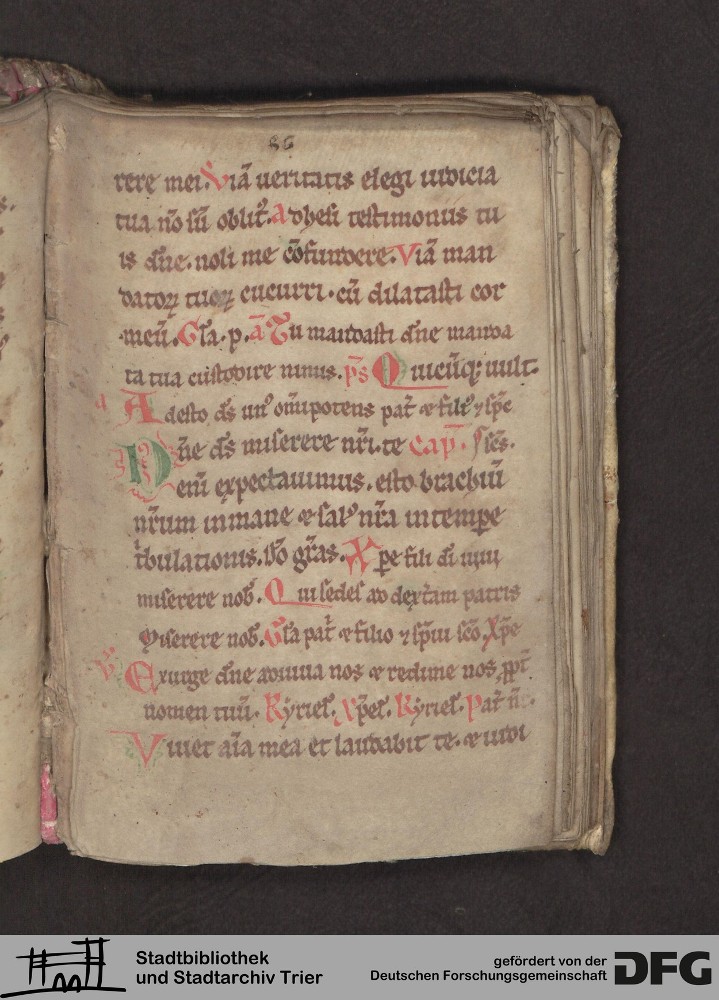 86
rere mei. Viā ueritatis elegi iudicia
tua nō sū oblit⁹. Adhesi testimoniis tu
is dn̄e. noli me cōfundere. Viā man
datoꝝ tuoꝝ cucurri. cū dilatasti cor
meū. Gl̄a. p. a. Tu mandasti dn̄e manda
ta tua custodire nimis. p̄s Quicūqꝫ uult.
a Adesto ds̄ un⁹ om̄ipotens pat̄ & fili⁹ ⁊ sp̄c
Dn̄e ds̄ miserere nr̄i. te cap̄.
enī expectauimus. esto brachiū
nr̄um in mane & sal⁹ nr̄a in tempe
tbulationis. Do gr̄as. Xpe fili di uiui
miserere nob̄. Qui sedes ad dext̄am patris
Miserere nob̄. Gl̄a pat̄ & filio ⁊ sp̄ui sc̄o. Xp̄e
Exurge dn̄e adiuua nos & redime nos ꝓpt̄
nomen tuū. Kyriel̄. Xp̄el̄. Kyriel̄. Pat̄ n̄.
Viuet aīa mea et laudabit te. & iudi
Stadtbibliothek
und Stadtarchiv Trier
gefördert von der
Deutschen Forschungsgemeinschaft
DFG